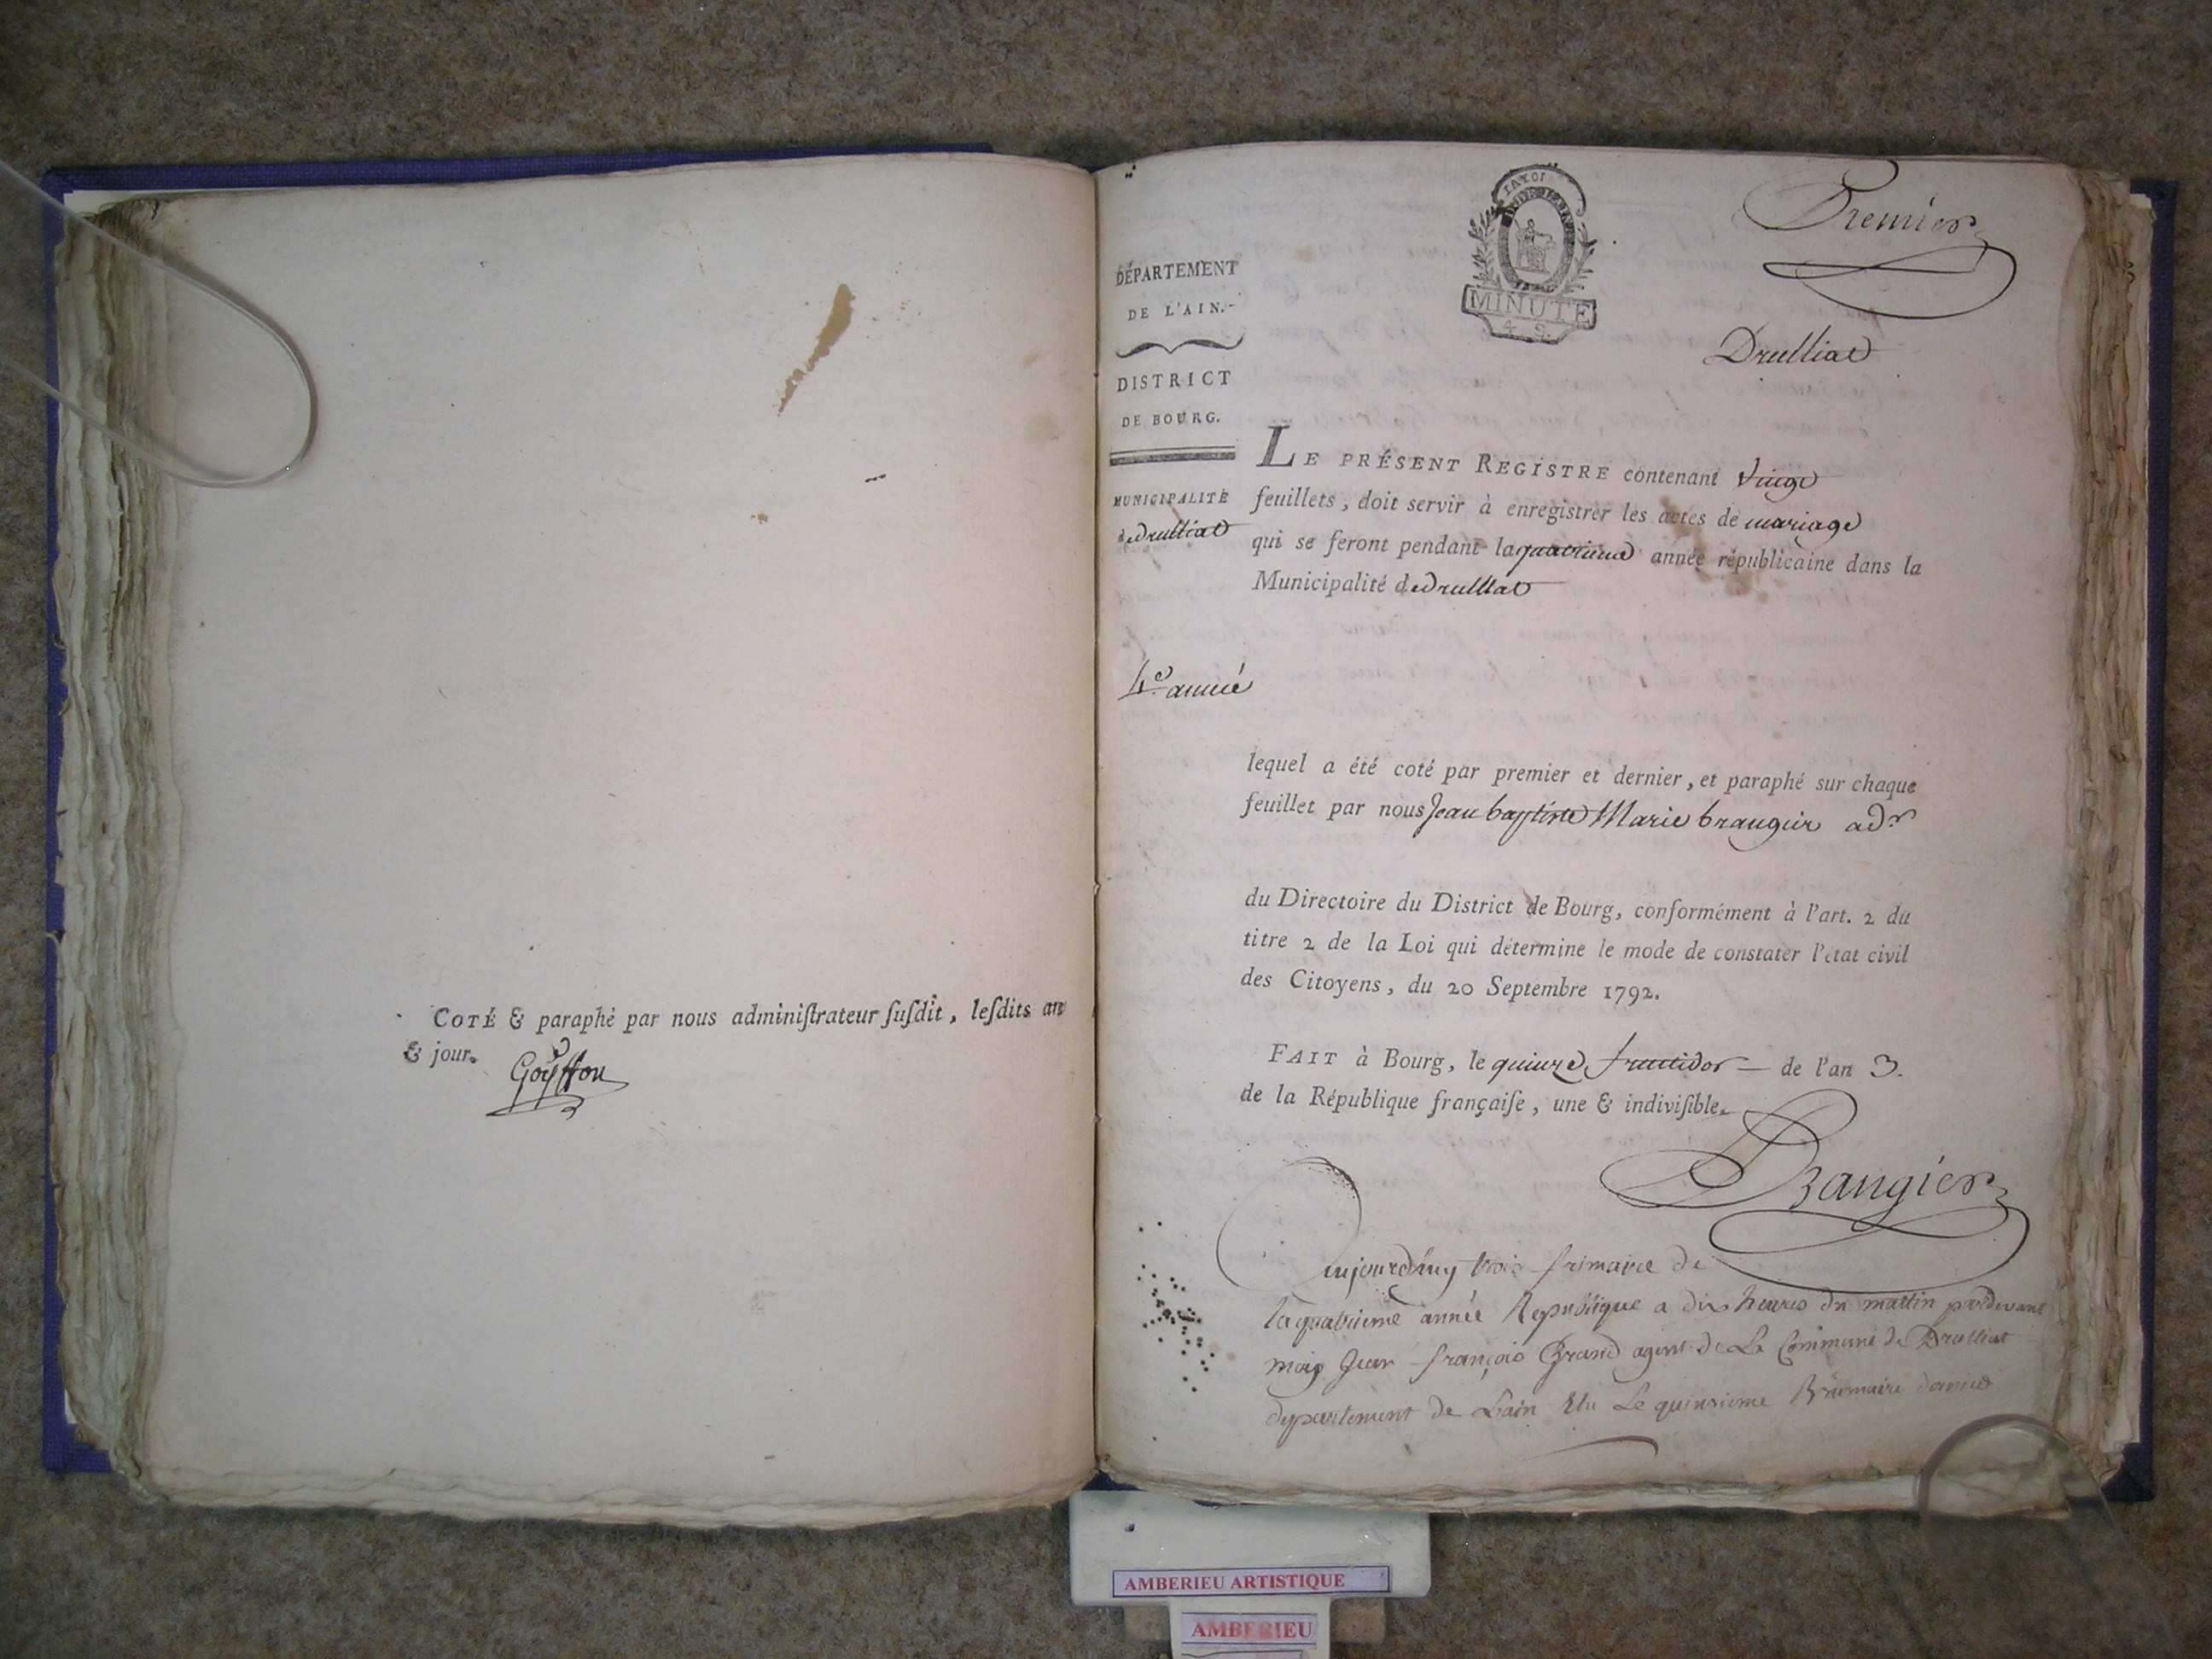 COTÉ & paraphé par nous adminiſtrateur ſuſdit, leſdits an
& jour.
Goÿffon
LA LOI
MINUTE
4. S.
Premier
Drulliat
DÉPARTEMENT
DE L'AIN.
DISTRICT
DE BOURG.
MUNICIPALITÉ
de Drulliat
LE PRÉSENT REGISTRE contenant vingt
feuillets, doit servir à enregistrer les actes de mariage
qui se feront pendant la quatrieme année républicaine dans la
Municipalité de Drulliat
4e. année
lequel a été coté par premier et dernier, et paraphé sur chaque
feuillet par nous Jean baptiste Marie brangier adr
du Directoire du District de Bourg, conformément à l'art. 2 du
titre 2 de la Loi qui détermine le mode de constater l'état civil
des Citoyens, du 20 Septembre 1792.
FAIT à Bourg, le quinze fructidor de l'an 3.
de la République françaiſe, une & indiviſible.
Brangier
aujourdhuy trois frimaire de
la quatrieme année Republique a dix heures du mattin pardevant
moy Jean françois Grand agent de La Commune de Drulliat
departement de Lain Elu Le quinzieme Brumaire
AMBERIEU ARTISTIQUE
AMBERIEU